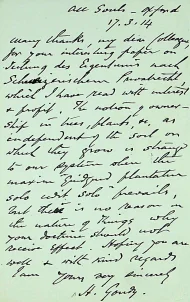 All Souls - Oxford
17.3.14
Many thanks, my dear Colleague,
for your interesting paper on
Teilung des Eigentums nach
Schweizerischem Privatrecht
which I have read with interest
& profit. The notion of owner-
ship in trees, plants &c, as
independent of the soil on
which they grow is strange
to our system where the
maxim "quidquid plantatur
solo cedit solo" prevails,
but there is no reason in
the nature of things why
your doctrine should not
receive effect. Hoping you are
well & with kind regards
I am Yours very sincerely
H. Goudy